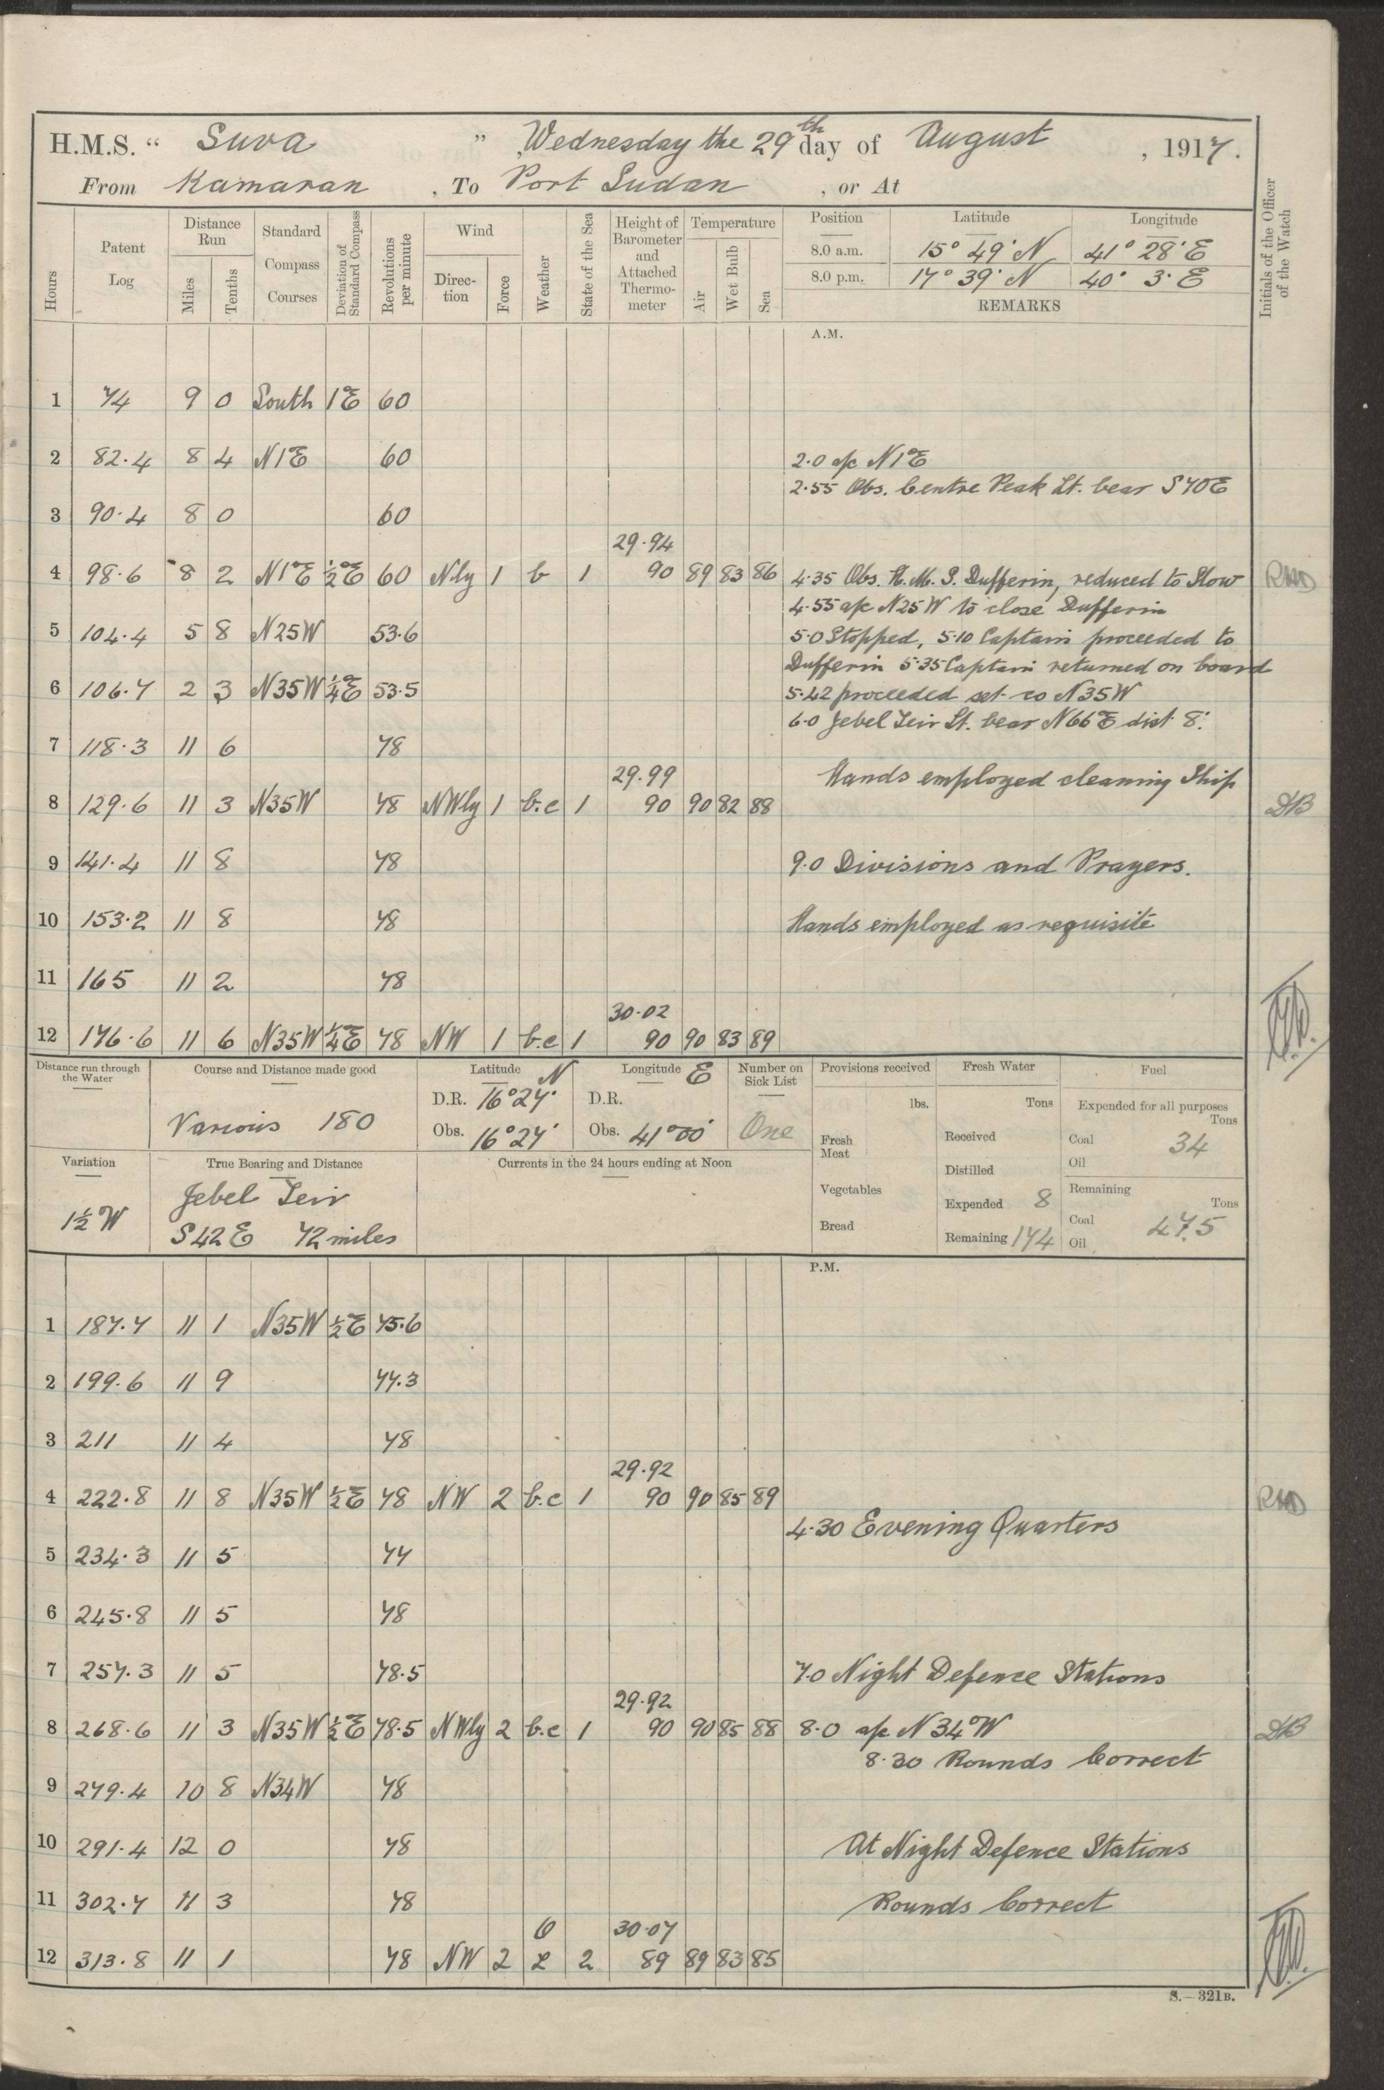 H.M.S. “ Suva ” , Wednesday the 29th day of August , 1917.
From Kamaran , To Port Sudan , or At
Hours
Patent Log
Distance Run
Miles
Tenths
Standard Compass Courses
Deviation of Standard Compass
Revolutions per minute
Wind
Direction
Force
Weather
State of the Sea
Height of Barometer and Attached Thermometer
Temperature
Air
Wet Bulb
Sea
Position Latitude Longitude
8.0 a.m. 15° 49' N 41° 28' E
8.0 p.m. 17° 39' N 40° 3' E
REMARKS
Initials of the Officer of the Watch
A.M.
1 74 9 0 South 1°E 60
2 82.4 8 4 N1°E 60 2.0 a/c N1°E
2.55 Obs. Centre Peak Lt. bear S70E
3 90.4 8 0 60
29.94
4 98.6 8 2 N1°E ½°E 60 Nly 1 b 1 90 89 83 86 4.35 Obs. H.M.S. Dufferin, reduced to Slow RHD
4.55 a/c N25W to close Dufferin
5 104.4 5 8 N25W 53.6 5.0 Stopped, 5.10 Captain proceeded to
Dufferin 5.35 Captain returned on board
6 106.7 2 3 N35W ¼°E 53.5 5.42 proceeded set co N35W
6.0 Jebel Teir Lt. bear N66°E dist 8'.
7 118.3 11 6 78
29.99 Hands employed cleaning Ship
8 129.6 11 3 N35W 78 NWly 1 b.c 1 90 90 82 88 DB
9 141.4 11 8 78 9.0 Divisions and Prayers.
10 153.2 11 8 78 Hands employed as requisite
11 165 11 2 78
30.02
12 176.6 11 6 N35W ¼°E 78 NW 1 b.c 1 90 90 83 89
Distance run through the Water
Course and Distance made good
Various 180
Latitude N
D.R. 16°27'
Obs. 16°27'
Longitude E
D.R.
Obs. 41°00'
Number on Sick List
One
Provisions received
lbs.
Fresh Meat
Vegetables
Bread
Fresh Water
Tons
Received
Distilled
Expended 8
Remaining 174
Fuel
Expended for all purposes
Tons
Coal 34
Oil
Remaining
Tons
Coal 475
Oil
Variation
1½ W
True Bearing and Distance
Jebel Teir
S42E 72 miles
Currents in the 24 hours ending at Noon
P.M.
1 187.7 11 1 N35W ½°E 75.6
2 199.6 11 9 77.3
3 211 11 4 78
29.92
4 222.8 11 8 N35W ½°E 78 NW 2 b.c 1 90 90 85 89 RHD
4.30 Evening Quarters
5 234.3 11 5 77
6 245.8 11 5 78
7 257.3 11 5 78.5 7.0 Night Defence Stations
29.92
8 268.6 11 3 N35W ½°E 78.5 NWly 2 b.c 1 90 90 85 88 8.0 a/c N34°W DB
8.30 Rounds Correct
9 279.4 10 8 N34W 78
10 291.4 12 0 78 At Night Defence Stations
11 302.7 11 3 78 Rounds Correct
O 30.07
12 313.8 11 1 78 NW 2 L 2 89 89 83 85
S.—321B.